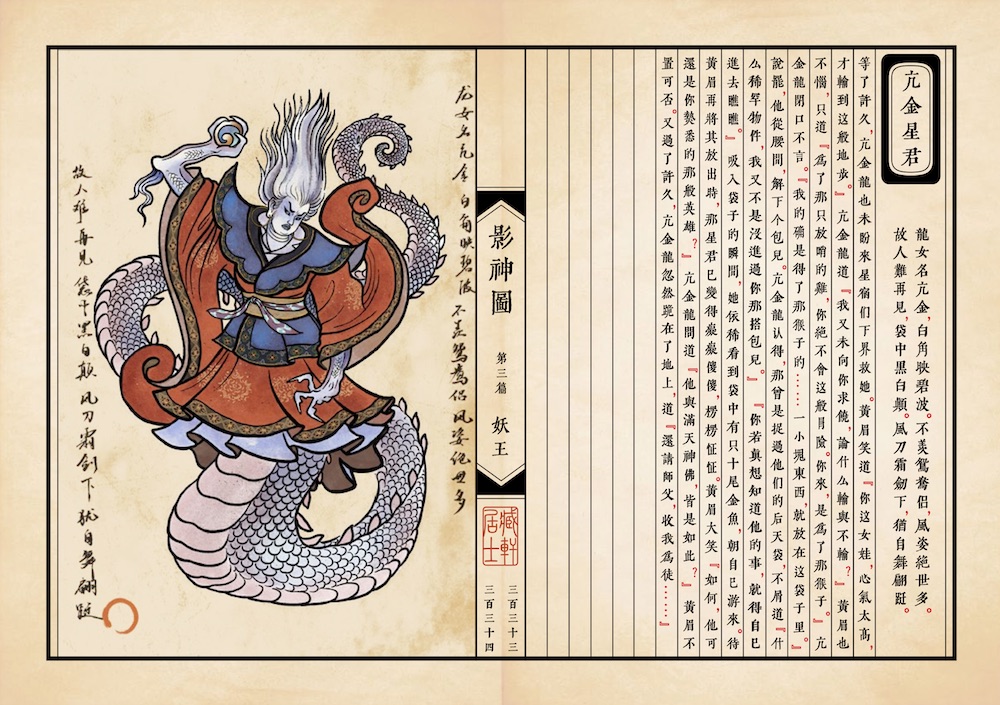 亢金星君
龍女名亢金,白角映碧波。不羨鴛鴦侶,風姿絕世多。
故人難再見,袋中黑白顛。風刀霜劍下,猶自舞翩跹。
等了許久,亢金龍也未盼來星宿們下界救她。黃眉笑道『你這女娃,心氣太高,
才輪到这般地步。』亢金龍道『我又未向你求饒,論什么輸與不輸?』黃眉也
不惱,只道『為了那只放哨的雞,你絕不會這般冒險。你來,是為了那猴子。』亢
金龍閉口不言。『我的確是得了那猴子的……一小塊東西,就放在這袋子里。』
說罷,他從腰間,解下个包兒。亢金龍認得,那曾是捉過他們的后天袋,不屑道『什
么稀罕物件,我又不是沒進過你那搭包兒。』『你若真想知道他的事,就得自已
進去瞧瞧。』吸入袋子的瞬間,她依稀看到袋中有只十尾金魚,朝自已游來。待
黃眉再將其放出時,那星君已變得癡癡傻傻,楞楞怔怔。黃眉大笑『如何,他可
還是你熟悉的那般英雄?』亢金龍問道『他與滿天神佛,皆是如此?』黃眉不
置可否。又過了許久,亢金龍忽然跪在了地上,道『還請師父,收我為徒……』
影神圖
第三篇 妖王
藏軒
居士
三百三十三
三百三十四
龙女名亢金 白角映碧波 不羨鴛鴦侶 风姿绝世多
故人难再見 袋中黑白颠 风刀霜剑下 犹自舞翩跹